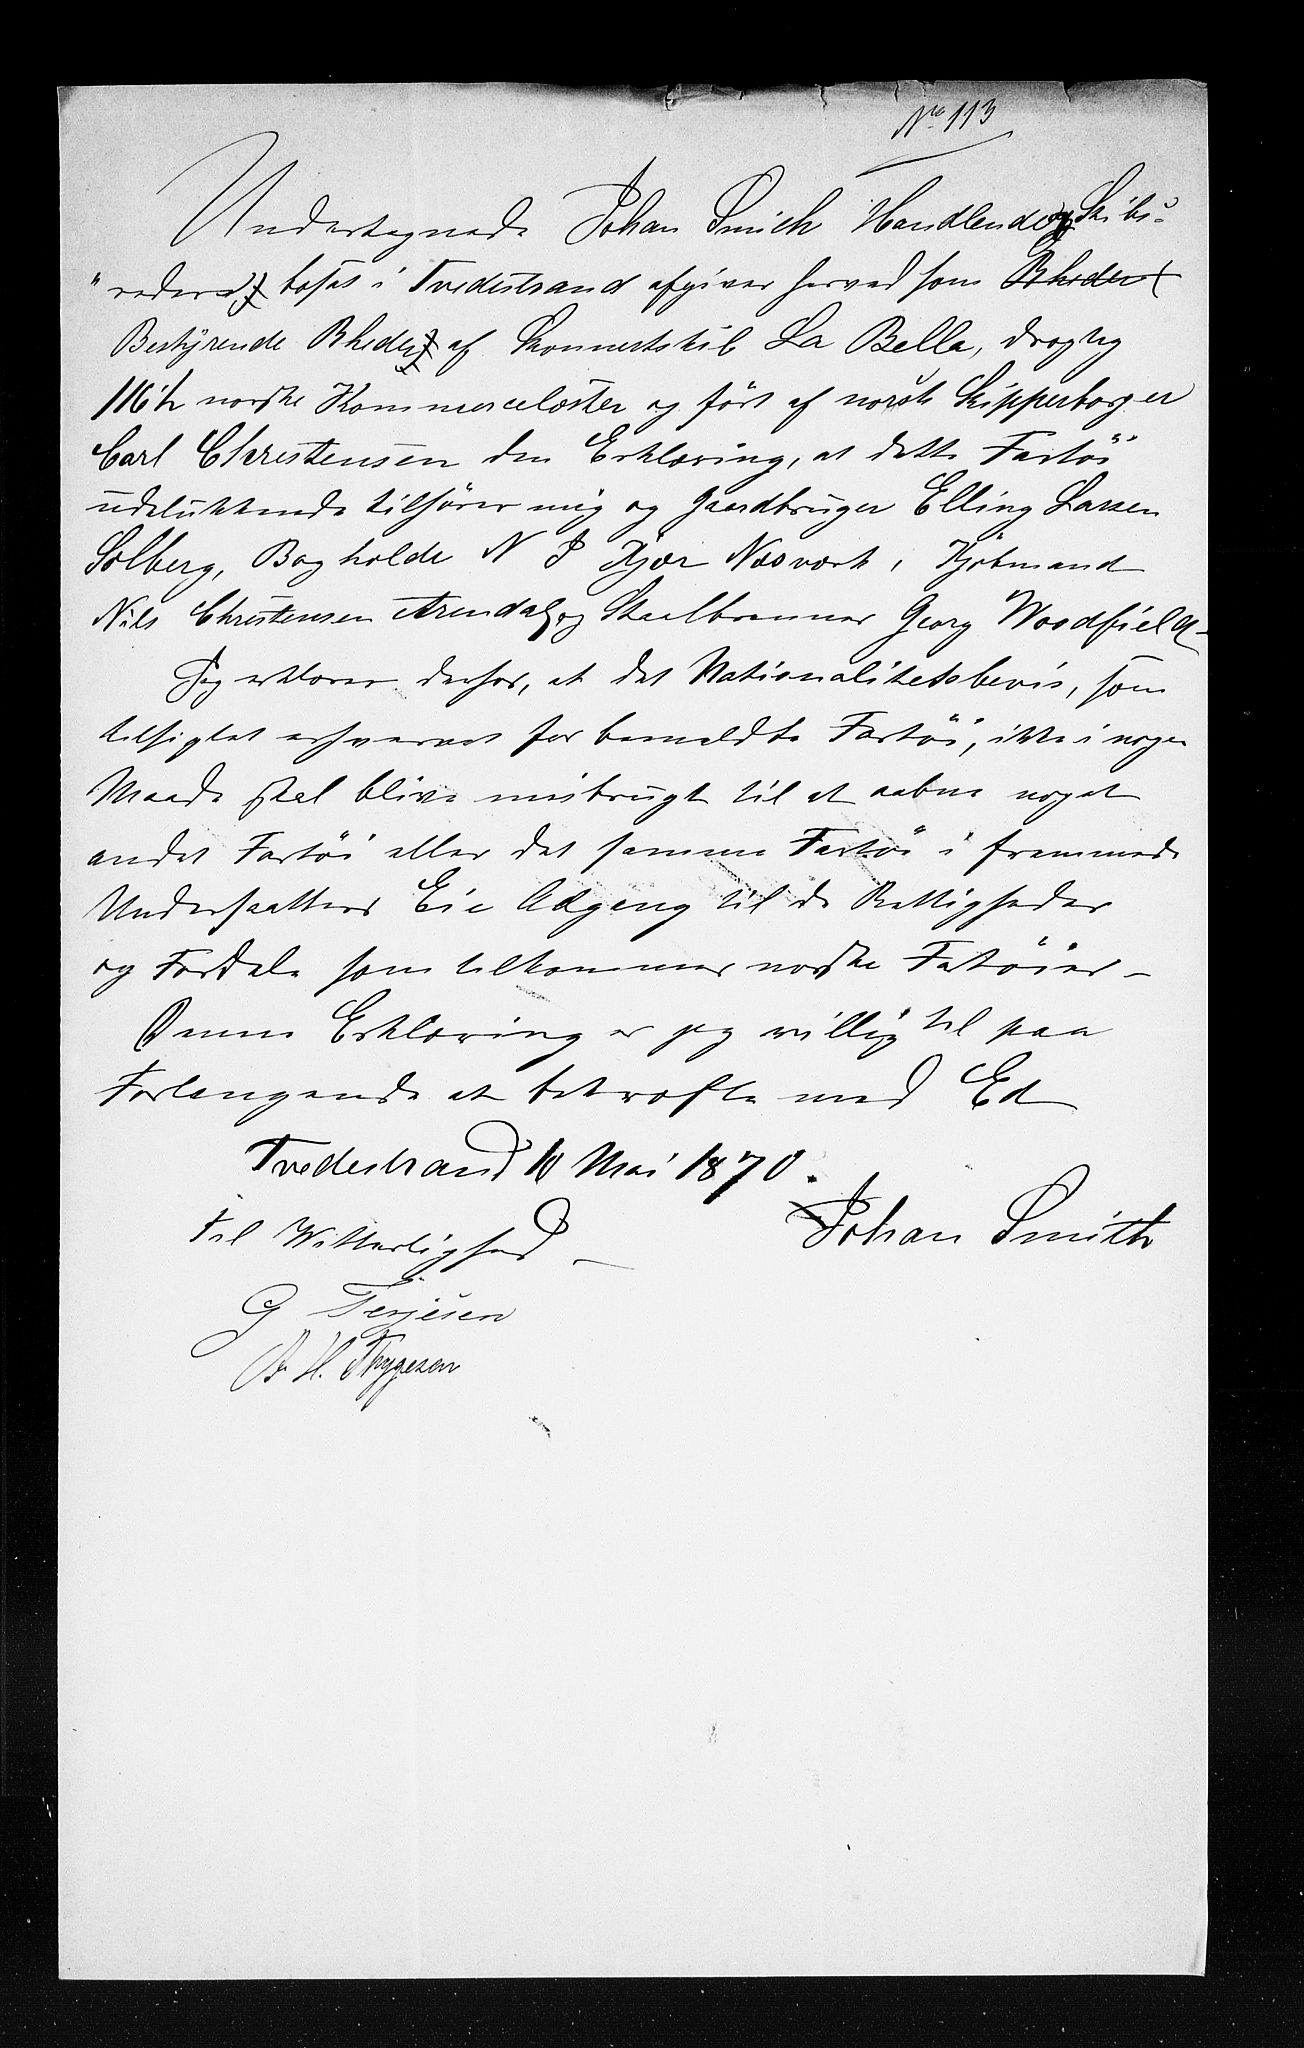 No 113
Undertegnede Johan Smith Handlende og Skibs-
"reder, bosat i Tvedestrand afgiver herved som Rheder
Bestyrende Rheder af Skonnertskib La Bella, drægtig
116½ norske Kommercelæster og ført af norsk Skipperborger
Carl Christensen den Erklæring, at dette Fartöi
udelukkende tilhører mig og Gaardbruger Elling Larsen
Solberg, Bogholde N P Kjær Næsværk, Kjøbmand
Nils Christensen Arendal, og Staalbrenner Georg Woodfield-
Jeg erklærer derhos, at det Nationalitetsbevis, som
tilsigtet erhvervet for bemeldte Fartöi, ikke i nogen
Maade skal blive misbrugt til at aabne noget
andet Fartöi eller det samme Fartöi i fremmede
Undersaatters Eie Adgang til de Rettigheder
og Fordele som tilkommer norske Fatöier-
Denne Erklæring er jeg villig til paa
Forlangende at bekræfte med Ed
Tvedestrand 10 Mai 1870.
Johan Smith
Til Vitterlighed
G Terjesen
H. Thygesen